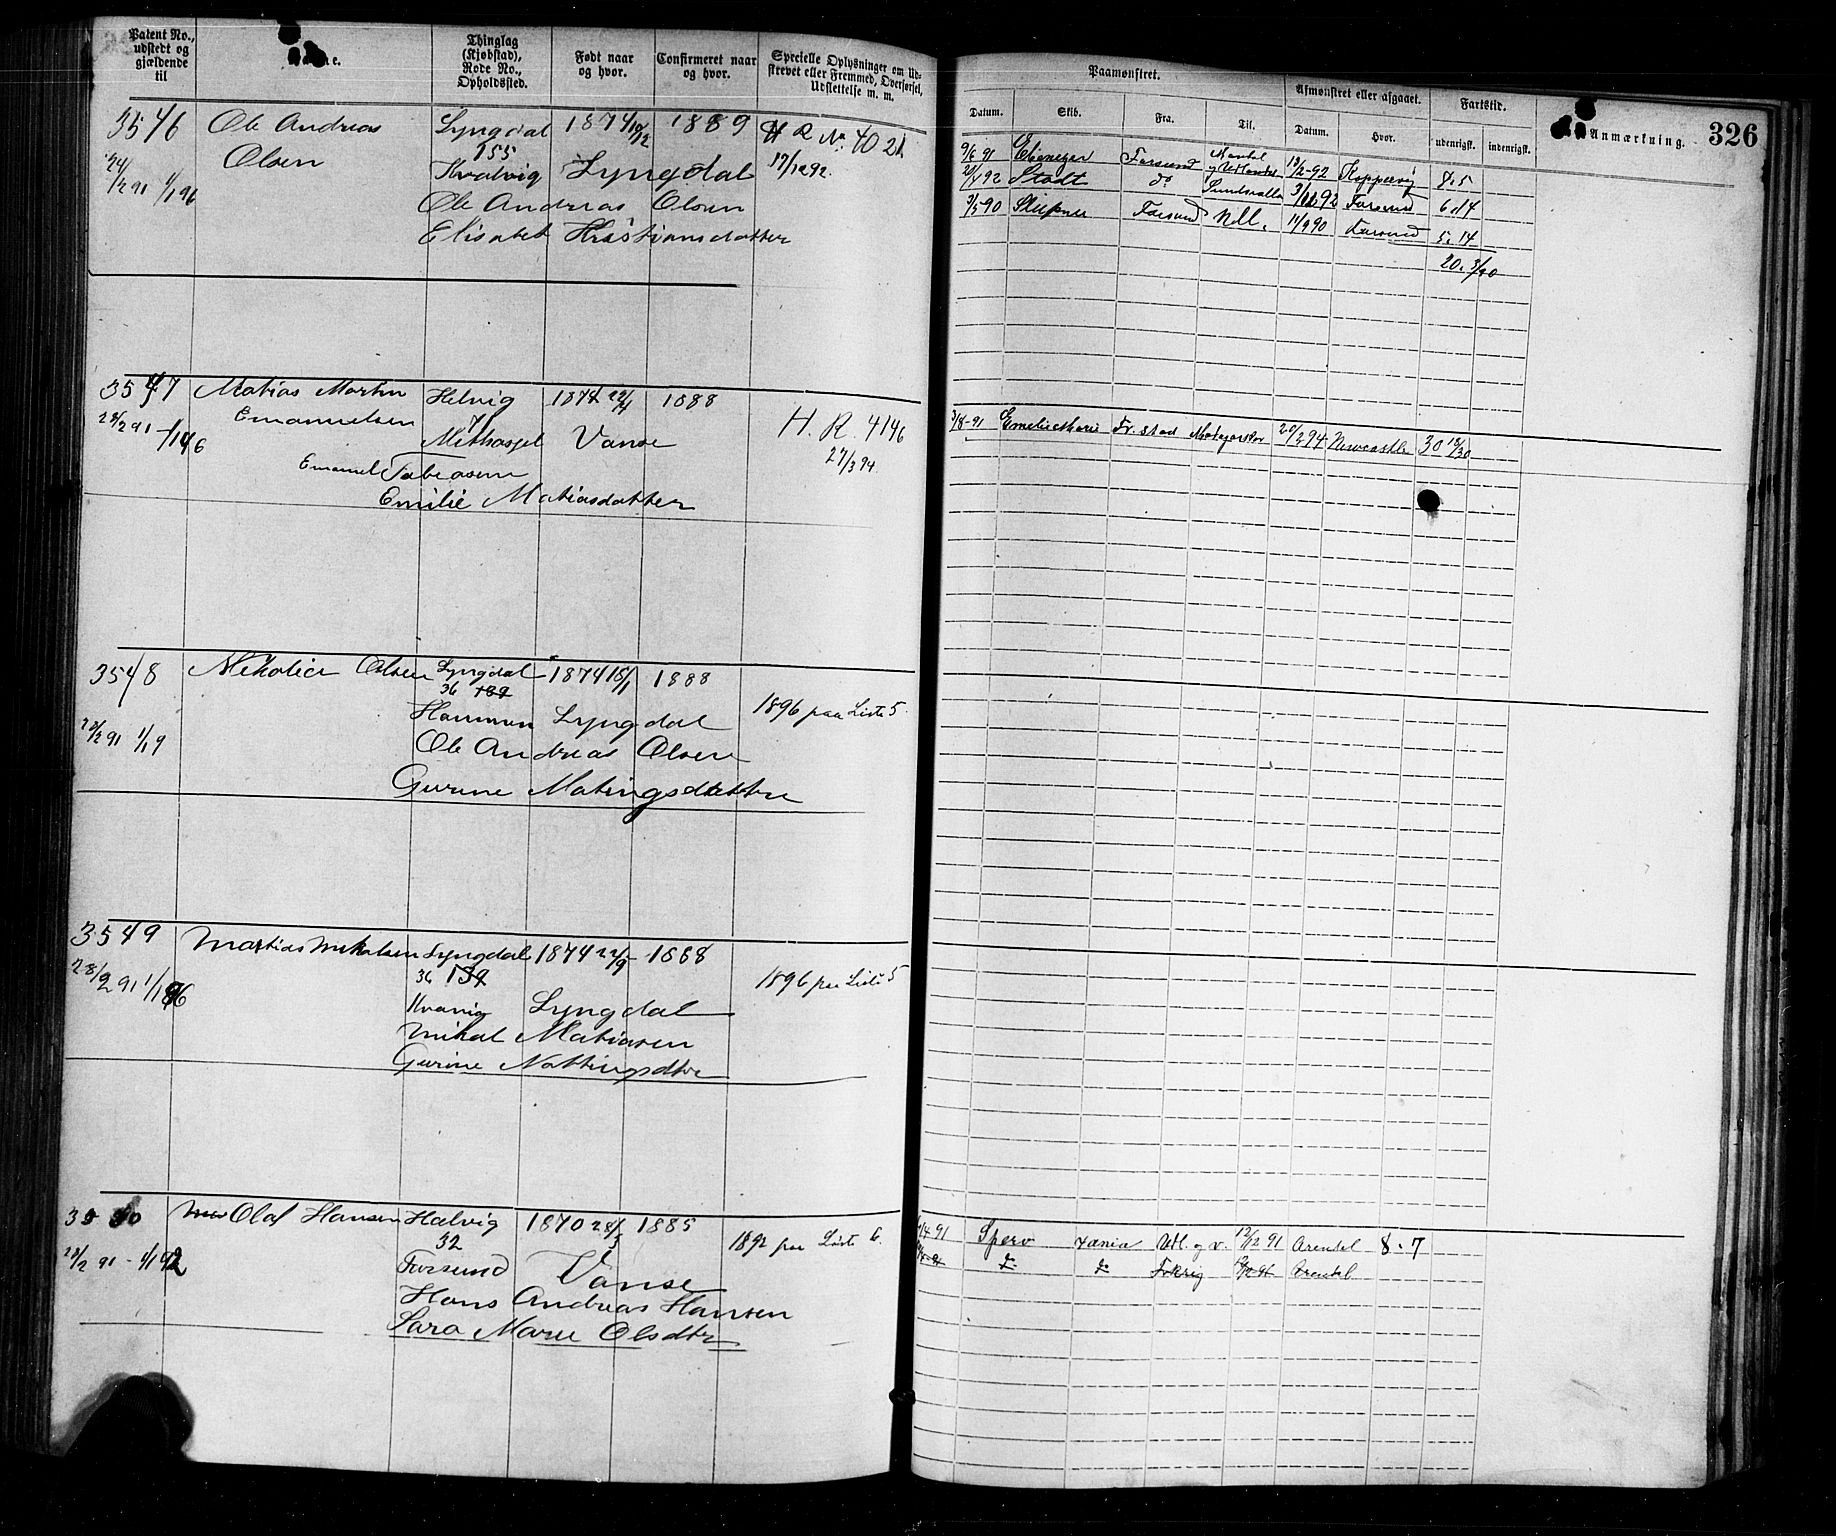 Patent No., udstedt og gjældende til
Thinglag (Kjøbstad), Rode No., Opholdssted.
Født naar og hvor.
Confirmeret naar og hvor.
Specielle Oplysninger om Udstrevet eller Fremmed, Overførsel, Udslettelse m. m.
3546 Ole Andreas Lyngdal 1874 10/12 1889 H R No. 4021
Olsen 155 17/12 92.
24/2 91 1/1 96 Kvalvig Lyngdal
Ole Andreas Olsen
Elisabet Kristiansdatter
3547 Matias Martin Helvig 1874 22/4 1888
Emanuelsen 7 H. R. 4146
28/2 91 - 1/1 96 Vanse 27/3 94
Emanuel Tobiasen
Emilie Matiasdatter
3548 Nikolai Olsen Lyngdal 1874 18/1 1888
36 189
28/2 91 1/1 9 Lyngdal 1896 paa Liste 5.
Ole Andreas Olsen
Gurine Matingsdatter
3549 Martias Mikalsen Lyngdal 1874 22/9 1888
36 139
28/2 91 1/1 96 Kvavig Lyngdal 1896 paa Liste 5
Mikal Matiasen
Gurine Nottingsdtr
3550 Olaf Hansen Halvig 1870 28/5 1885
32 1892 paa Liste 6.
28/2 91 - 1/1 92 Farsund Vanse
Hans Andreas Hansen
Sara Marie Olsdtr
Paamønstret. Afmønstret eller afgaaet. Fartstid. Anmærkning. 326
Datum. Skib. Fra. Til. Datum. Hvor. udenrigst. indenrigst.
9/6 91 Ebenezer Farsund Mandal og Utlandet 13/2-92 Koppervig 8.5
21/4 92 Stadt do Sundsvall 3/11 92 Farsund 6.14
3/5 90 Farsund Udl. 11/9 90 Farsund 5.14
20. 3/30
3/8-91 Emelie Marie Fr. stad 20/2 94 Newcastle 30 18/30
91 Spero Udl. og v. 12/12 91 Arendal 8.7
do do Arendal